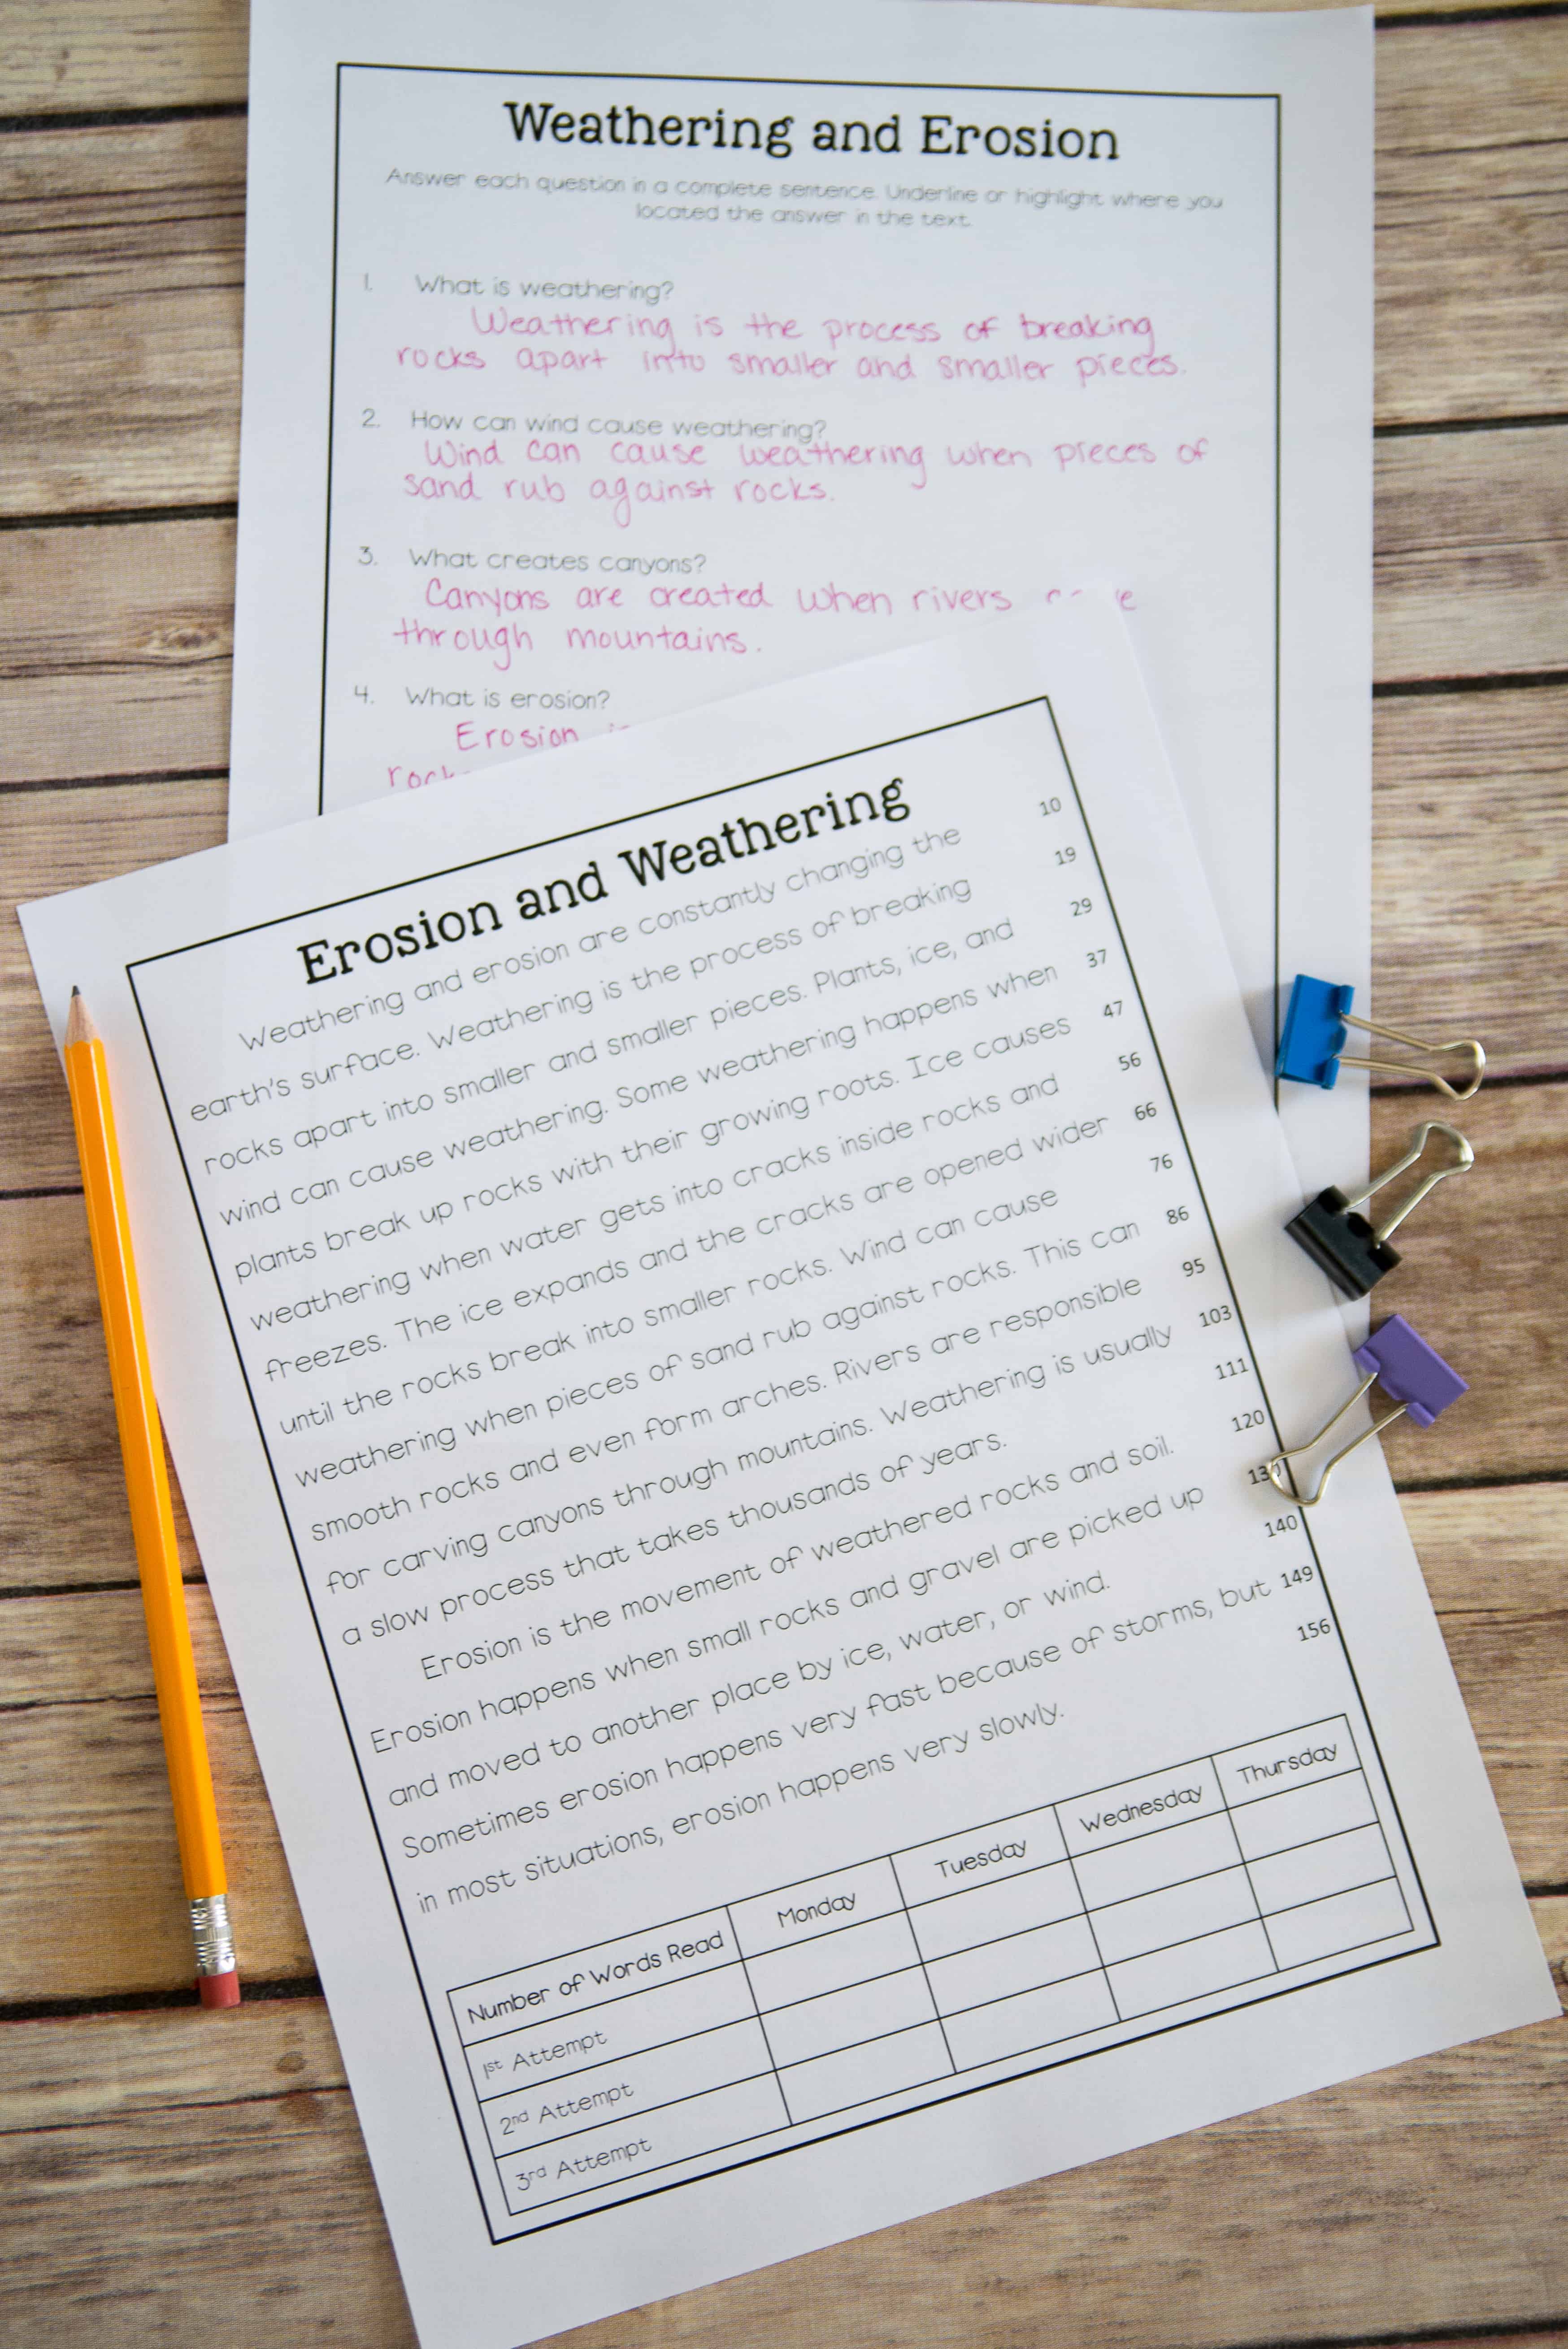 Weathering and Erosion
Answer each question in a complete sentence. Underline or highlight where you
located the answer in the text.
1. What is weathering?
Weathering is the process of breaking
rocks apart into smaller and smaller pieces.
2. How can wind cause weathering?
Wind can cause weathering when pieces of
sand rub against rocks.
3. What creates canyons?
Canyons are created when rivers
through mountains.
4. What is erosion?
Erosion
Erosion and Weathering
Weathering and erosion are constantly changing the 10
earth's surface. Weathering is the process of breaking 19
rocks apart into smaller and smaller pieces. Plants, ice, and 29
wind can cause weathering. Some weathering happens when 37
plants break up rocks with their growing roots. Ice causes 47
weathering when water gets into cracks inside rocks and 56
freezes. The ice expands and the cracks are opened wider 66
until the rocks break into smaller rocks. Wind can cause 76
weathering when pieces of sand rub against rocks. This can 86
smooth rocks and even form arches. Rivers are responsible 95
for carving canyons through mountains. Weathering is usually 103
a slow process that takes thousands of years. 111
Erosion is the movement of weathered rocks and soil. 120
Erosion happens when small rocks and gravel are picked up 130
and moved to another place by ice, water, or wind. 140
Sometimes erosion happens very fast because of storms, but 149
in most situations, erosion happens very slowly. 156
Number of Words Read Monday Tuesday Wednesday Thursday
1st Attempt
2nd Attempt
3rd Attempt